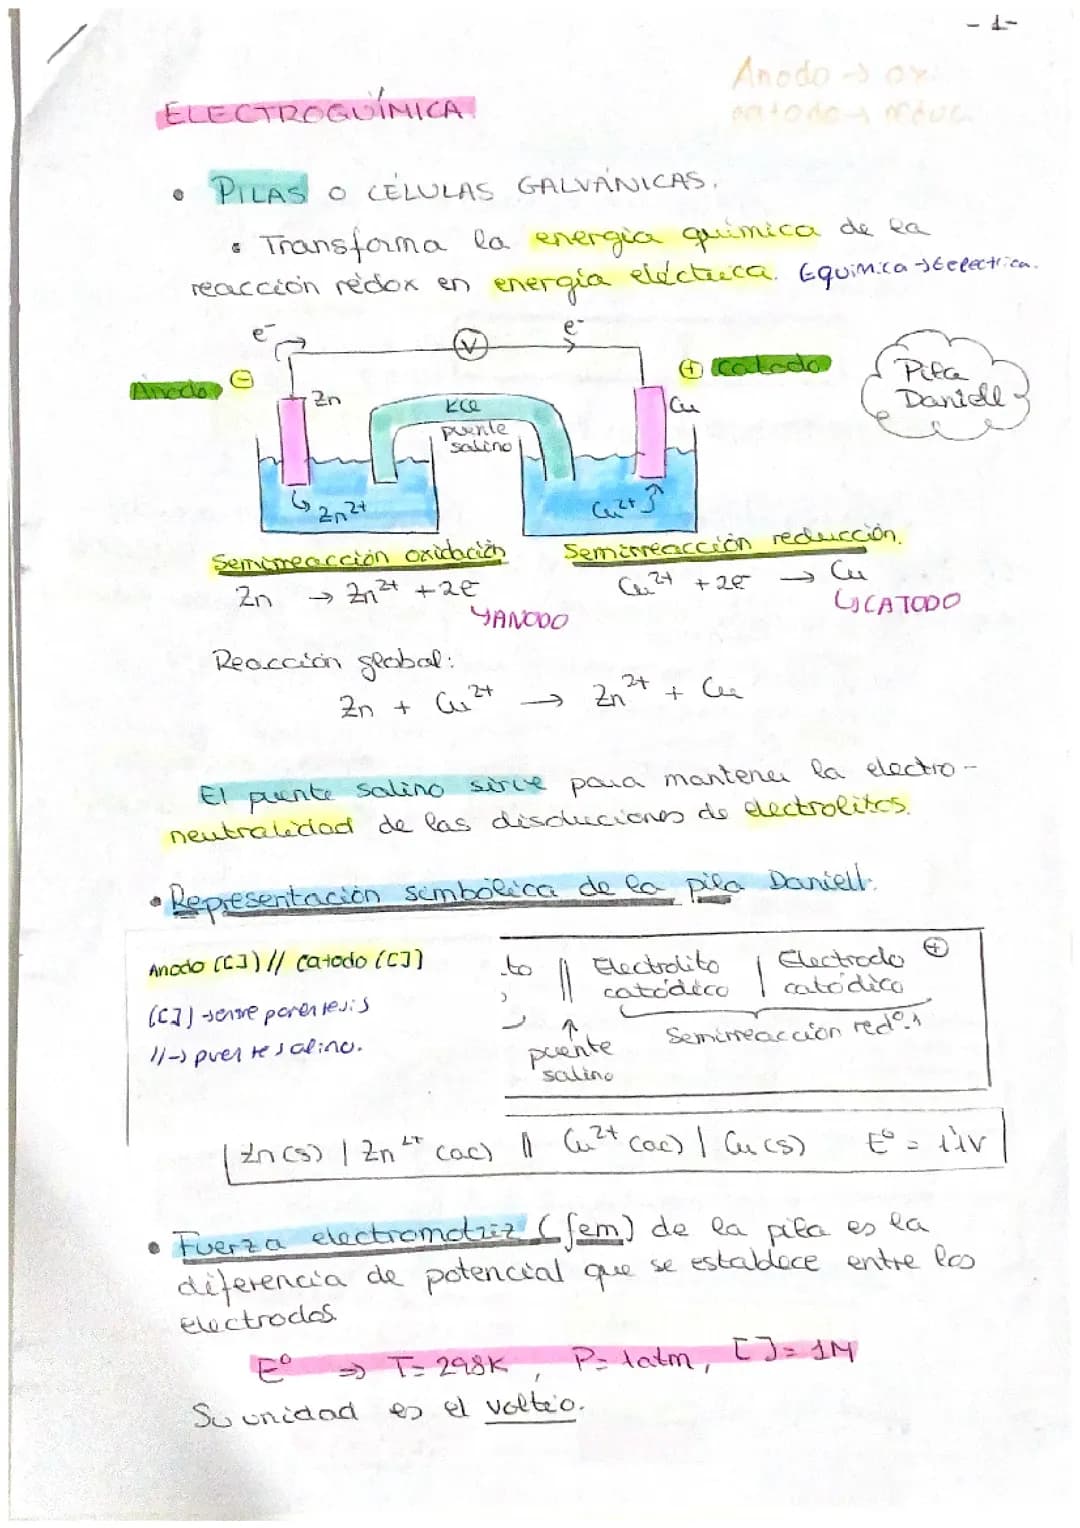 - 1 -
Anodo → ox
catodo → reduc
ELECTROQUÍMICA
• PILAS O CÉLULAS GALVÁNICAS.
• Transforma la energía química de la
reacción redox en energía eléctrica. Equimica → Eelectrica.
e⁻ V e⁻
Anodo ⊖ ⊕ Catodo
Zn KCl Cu
puente
salino
Pila
Daniell
Zn²⁺ Cu²⁺
Semirreacción oxidación Semirreacción reducción.
Zn → Zn²⁺ + 2e⁻ Cu²⁺ + 2e⁻ → Cu
↳ANODO ↳CATODO
Reacción global:
Zn + Cu²⁺ → Zn²⁺ + Cu
El puente salino sirve para mantener la electro-
neutralidad de las disoluciones de electrolitos.
• Representación simbólica de la pila Daniell.
Anodo ([ ]) // Catodo ([ ])
([ ]) → entre parentesis
// → puente salino.
to || Electrolito | Electrodo ⊕
catódico | catódico
↑ Semirreacción redº.
puente
salino
Zn (s) | Zn²⁺ (ac) || Cu²⁺ (ac) | Cu (s) E⁰ = 1'1V
• Fuerza electromotriz (fem) de la pila es la
diferencia de potencial que se establece entre los
electrodos.
E⁰ ⇒ T = 298K, P = 1atm, [ ] = 1M
Su unidad es el voltio.